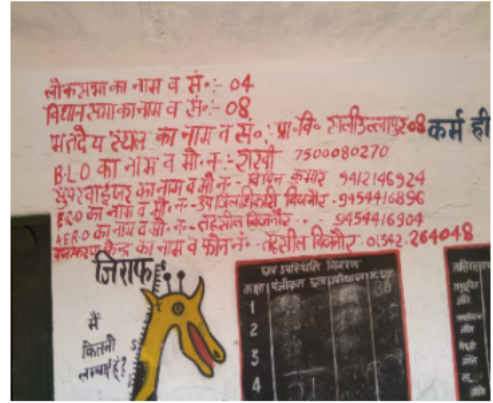 लोकसभा का नाम व सं॰:- 04
विधानसभा का नाम व सं॰:- 08
मतदेय स्थल का नाम व सं॰: प्रा॰वि॰ 08
B.L.O का नाम व मो॰न॰:- राखी 7500080270
सुपरवाईजर का नाम व मो॰नं॰- विपिन कुमार 9412146924
E.R.O का नाम व मो॰नं॰- उपजिलाधिकारी बिजनौर - 9454416896
A.E.R.O का नाम व मो॰नं॰- तहसील बिजनौर - 9454416904
केन्द्र का नाम व फोन नं॰- तहसील बिजनौर - 01342-264048
कर्म ही
जिराफ
मैं
कितनी
लम्बाई हूँ?
छात्र उपस्थिति विवरण
कक्षा पंजीकृत छात्र
1
2
3
4